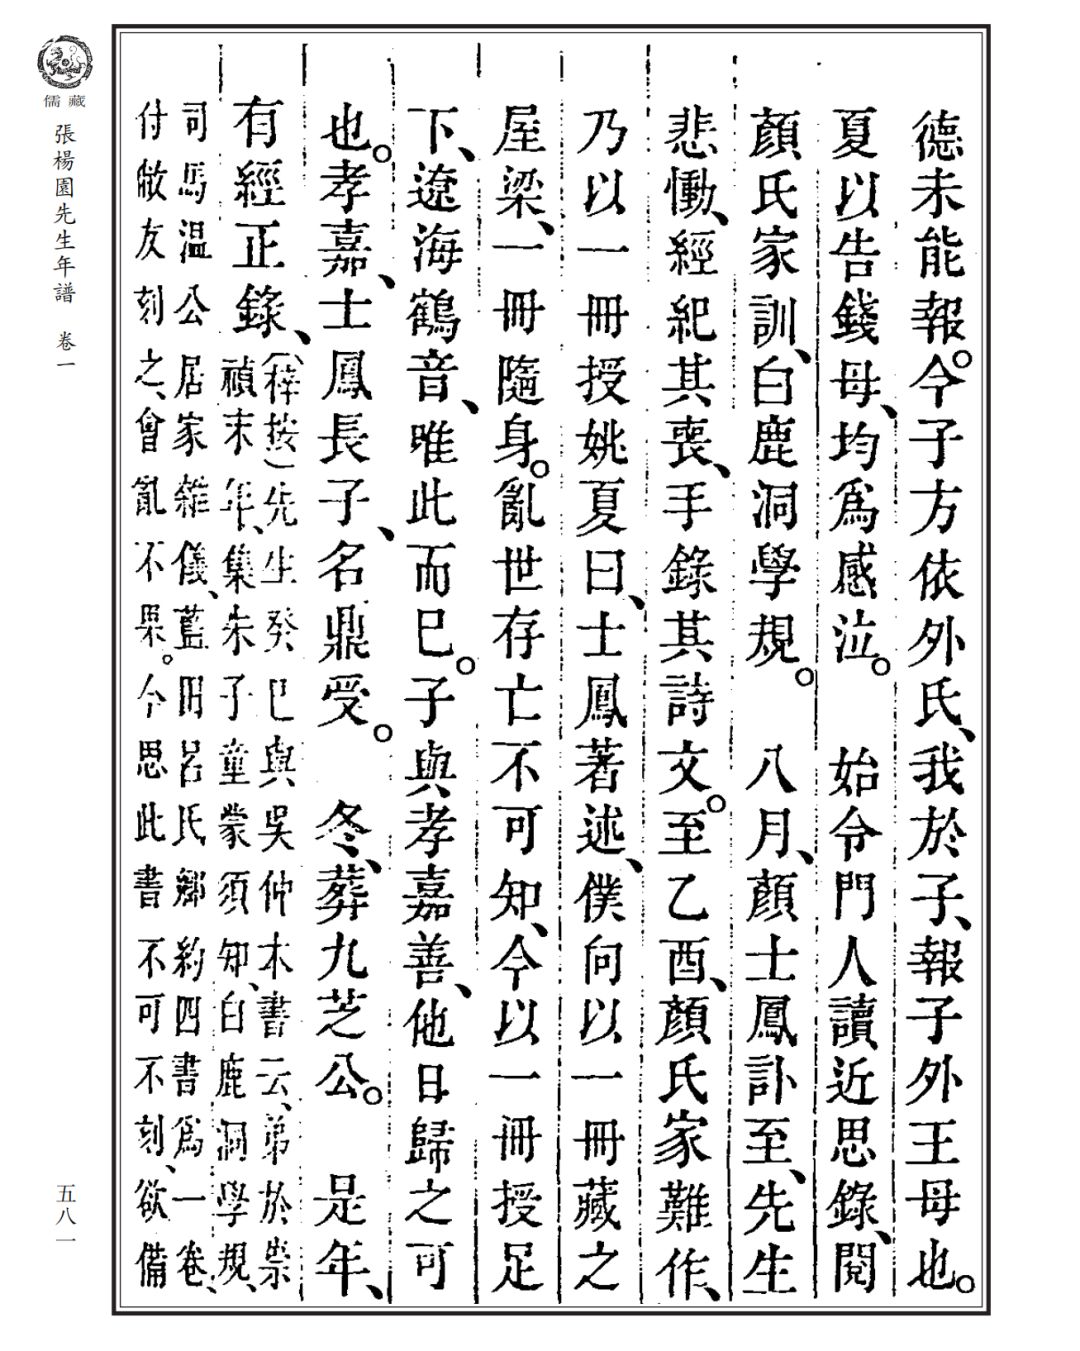 德未能報。今子方依外氏、我於子、報子外王母也。
夏以告錢母、均爲感泣。　始令門人讀近思錄、閱
顏氏家訓、白鹿洞學規。　八月、顏士鳳訃至、先生
悲慟、經紀其喪、手錄其詩文。至乙酉、顏氏家難作、
乃以一冊授姚夏曰、士鳳著述、僕向以一冊藏之
屋梁、一冊隨身。亂世存亡不可知、今以一冊授足
下、遼海鶴音、唯此而已。子與孝嘉善、他日歸之可
也。孝嘉、士鳳長子、名鼎受。　冬、葬九芝公。　是年、
有經正錄、
（梓按）先生癸巳與吳仲木書云、弟於崇
禎末年、集朱子童蒙須知、白鹿洞學規、
司馬溫公居家雜儀、藍田呂氏鄉約四書爲一卷、
付敝友刻之、會亂不果。今思此書不可不刻、欲備
儒藏
張楊園先生年譜　卷一
五八一